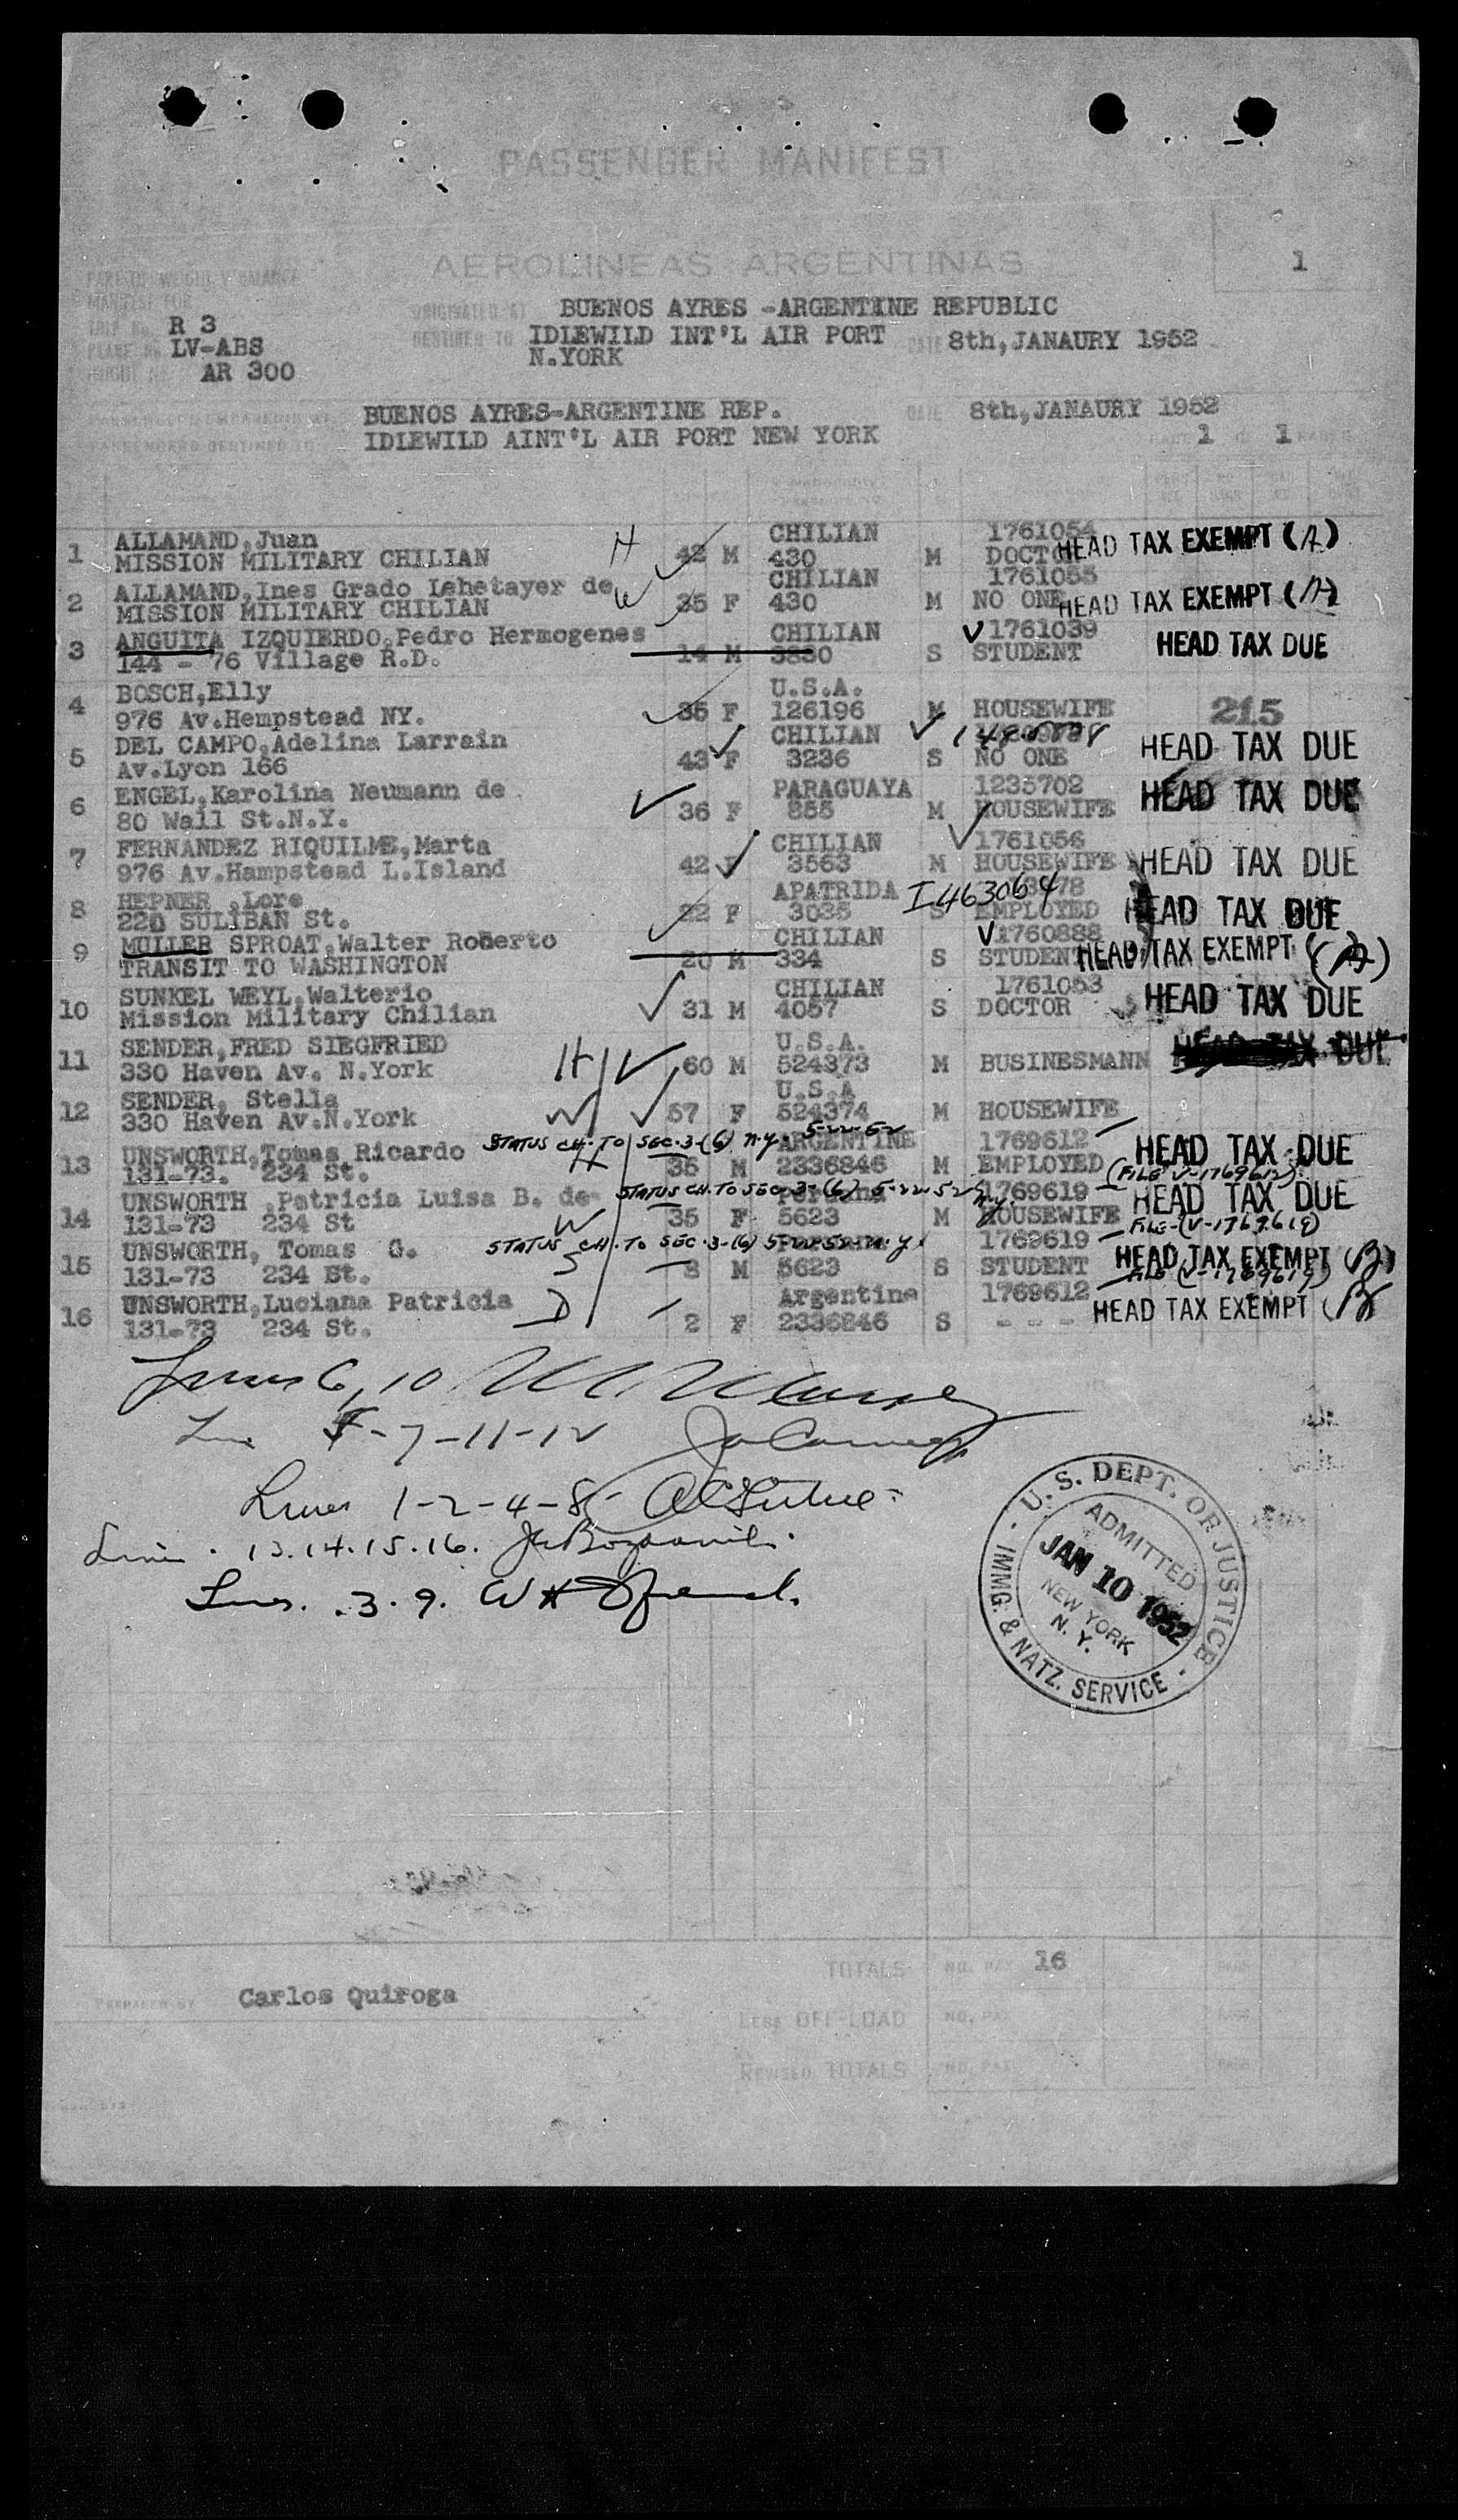 PASSENGER MANIFEST
1
AEROLINEAS ARGENTINAS
PART OF WEIGHT Y BALANCE
MANIFEST FOR
ORIGINATED AT BUENOS AYRES -ARGENTINE REPUBLIC
TRIP No. R 3
DESTINED TO IDLEWILD INT'L AIR PORT DATE 8th,JANAURY 1952
PLANE No. LV-ABS
N.YORK
FLIGHT No. AR 300
BUENOS AYRES-ARGENTINE REP. DATE 8th,JANAURY 1952
PASSENGERS DESTINED TO IDLEWILD AINT'L AIR PORT NEW YORK PAGE 1 1 PAGES
1 ALLAMAND,Juan H CHILIAN 1761054
MISSION MILITARY CHILIAN 42 M 430 M DOCTOR HEAD TAX EXEMPT (A)
2 ALLAMAND,Ines Grado Lehetayer de W CHILIAN 1761055
MISSION MILITARY CHILIAN 35 F 430 M NO ONE HEAD TAX EXEMPT (A)
3 ANGUITA IZQUIERDO,Pedro Hermogenes CHILIAN 1761039
144 - 76 Village R.D. 14 M 3830 S STUDENT HEAD TAX DUE
4 BOSCH,Elly U.S.A.
976 Av.Hempstead NY. 35 F 126196 M HOUSEWIFE 215
5 DEL CAMPO,Adelina Larrain CHILIAN
Av.Lyon 166 43 F 3236 S NO ONE HEAD TAX DUE
6 ENGEL,Karolina Neumann de PARAGUAYA 1235702
80 Wall St.N.Y. 36 F 855 M HOUSEWIFE HEAD TAX DUE
7 FERNANDEZ RIQUILME,Marta CHILIAN 1761056
976 Av.Hampstead L.Island 42 F 3563 M HOUSEWIFE HEAD TAX DUE
8 HEPNER ,Lore APATRIDA I463064
220 SULIBAN St. 22 F 3035 S EMPLOYED HEAD TAX DUE
9 MULLER SPROAT,Walter Roberto CHILIAN 1760888
TRANSIT TO WASHINGTON 20 M 334 S STUDENT HEAD TAX EXEMPT (A)
10 SUNKEL WEYL,Walterio CHILIAN 1761053
Mission Military Chilian 31 M 4057 S DOCTOR HEAD TAX DUE
11 SENDER,FRED SIEGFRIED H U.S.A. HEAD TAX DUE
330 Haven Av. N.York 60 M 524373 M BUSINESMANN
12 SENDER, Stella W U.S.A
330 Haven Av.N.York 57 F 524374 M HOUSEWIFE
STATUS CH. TO SEC. 3-(6) N.Y. 5-22-52
13 UNSWORTH,Tomas Ricardo H ARGENTINE 1769612 HEAD TAX DUE
131-73. 234 St. 35 M 2336846 M EMPLOYED (FILE V-1769612)
STATUS CH. TO SEC. 3-(6) 5-22-52 N.Y.
14 UNSWORTH ,Patricia Luisa B. de W 1769619 HEAD TAX DUE
131-73 234 St 35 F 5623 M HOUSEWIFE FILE-(V-1769619)
STATUS CH. TO SEC. 3-(6) 5-22-52 N.Y.
15 UNSWORTH, Tomas G. S 1769619 HEAD TAX EXEMPT (B)
131-73 234 St. 8 M 5623 S STUDENT FILE (V-1769619)
16 UNSWORTH,Luciana Patricia D Argentina 1769612 HEAD TAX EXEMPT (B)
131-73 234 St. 2 F 2336846 S - - - -
Lines 6,10
5-7-11-12
Lines 1-2-4-8-
Lines . 13.14.15.16.
Lines. .3.9.
U.S. DEPT. OF JUSTICE
ADMITTED
JAN 10 1952
NEW YORK
N.Y.
IMMG. & NATZ. SERVICE
TOTALS NO. PAX 16
PREPARED BY Carlos Quiroga
LESS OFF-LOAD NO. PAX
REVISED TOTALS NO. PAX